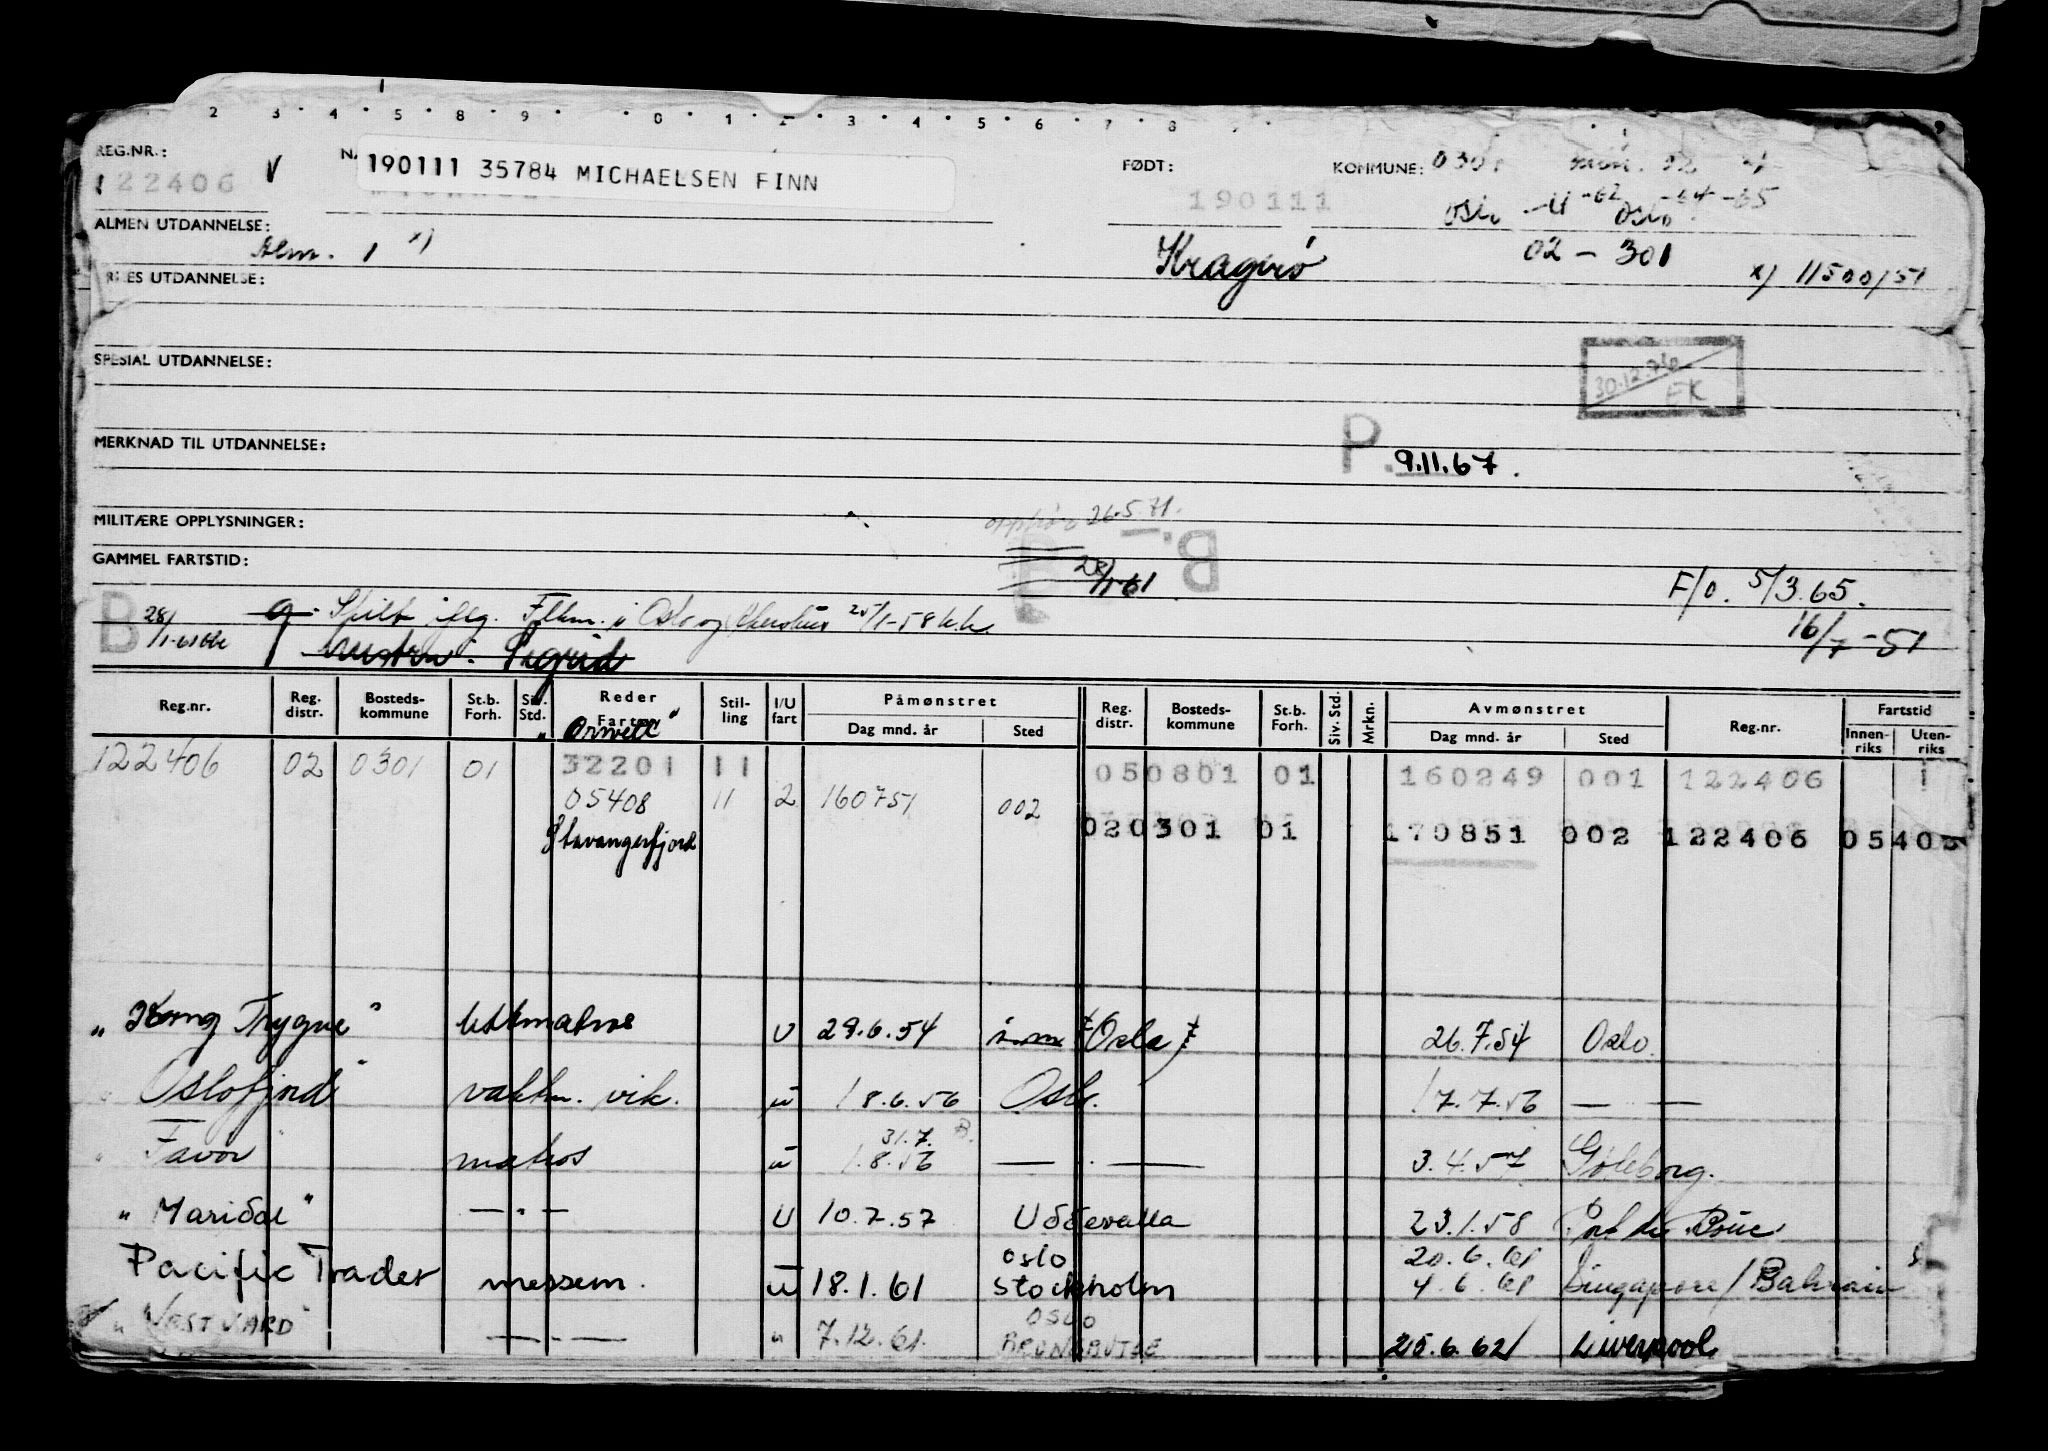 2 · 3 · 4 · 5 · 8 · 9 · · 0 · 1 · 2 · 3 · 4 · 5 · 6 · 7 · 8
REG.NR.: 190111 35784 MICHAELSEN FINN FØDT: KOMMUNE: 0301
122406 V 190111 Oslo
ALMEN UTDANNELSE:
Alm. 1 x) Kragerø 02 - 301 x) 11500/51
UTDANNELSE:
SPESIAL UTDANNELSE:
30.12.70
EK
MERKNAD TIL UTDANNELSE:
P. 9.11.67.
MILITÆRE OPPLYSNINGER: opphør 26.5.71.
B.-
GAMMEL FARTSTID: 28/1-61 F/o. 5/3.65.
B 28/1-61 i Oslo og 25/1-58 16/7-51
Sigrid
Reg.nr. Reg. distr. Bosteds-kommune St.b. Forh. Siv. Std. Reder Stil-ling I/U fart Påmønstret Reg. distr. Bosteds-kommune St.b. Forh. Siv. Std. Mrkn. Avmønstret Reg.nr. Fartstid
Dag mnd. år Sted Dag mnd. år Sted Innen-riks Uten-riks
"Orwell"
122406 02 0301 01 32201 11 050801 01 160249 001 122406 1
05408 11 2 160751 002
Stavangerfjord 020301 01 170851 002 122406 0540
"Kong Trygve" U 29.6.54 (Oslo) 26.7.54 Oslo.
"Oslofjord" vaktm. vik. u 18.6.56 Oslo. 17.7.56 — —
31.7. B.
"Favor" matros u 1.8.56 — · — 3.4.57 Göteborg.
"Maridal" — " — U 10.7.57 Uddevalla 23.1.58 Port de Bouc
Oslo 20.6.61
Pacific Trader messem. u 18.1.61 Stockholm 4.6.61 Singapore / Bahrain
OSLO
"VESTVARD" — · — " 7.12.61. 25.6.62 Liverpool